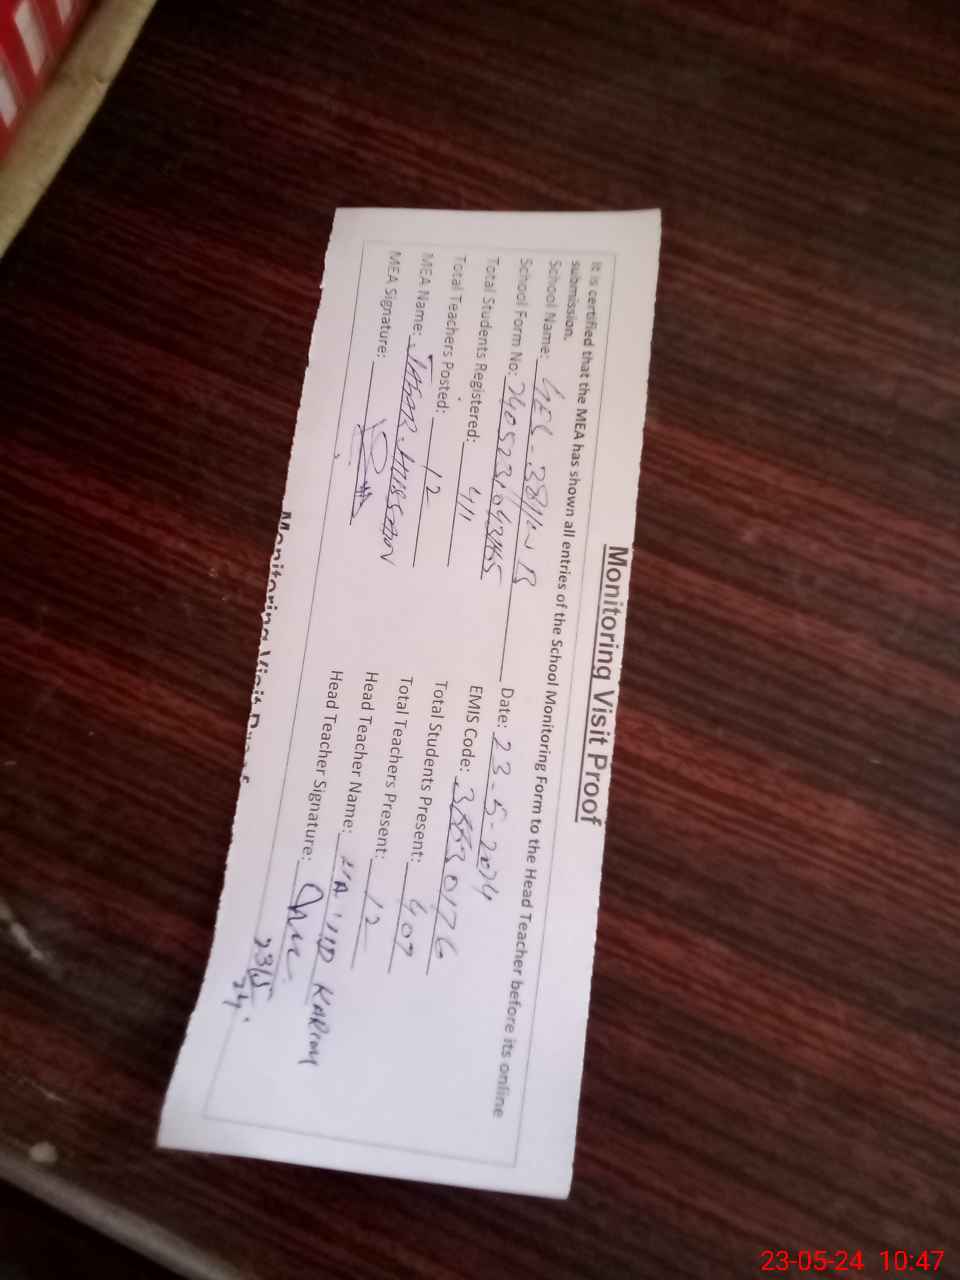 Monitoring Visit Proof
It is certified that the MEA has shown all entries of the School Monitoring Form to the Head Teacher before its online
submission.
School Name: Date: 23-5-2024
School Form No: EMIS Code:
Total Students Registered: 411 Total Students Present: 409
Total Teachers Posted: 12 Total Teachers Present: 12
MEA Name: HUSSAIN Head Teacher Name: KARIM
MEA Signature: Head Teacher Signature:
23/5
24
Monitoring Visit Proof
23-05-24 10:47